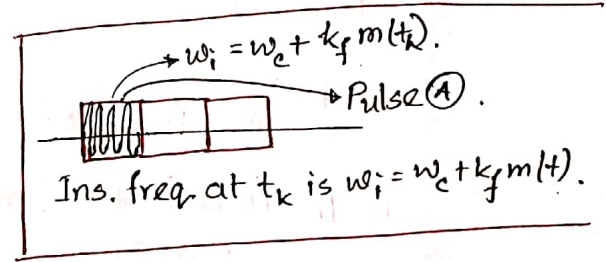 ω_i = ω_c + k_f m(t_k).
Pulse Ⓐ.
Ins. freq. at t_k is ω_i = ω_c + k_f m(t).